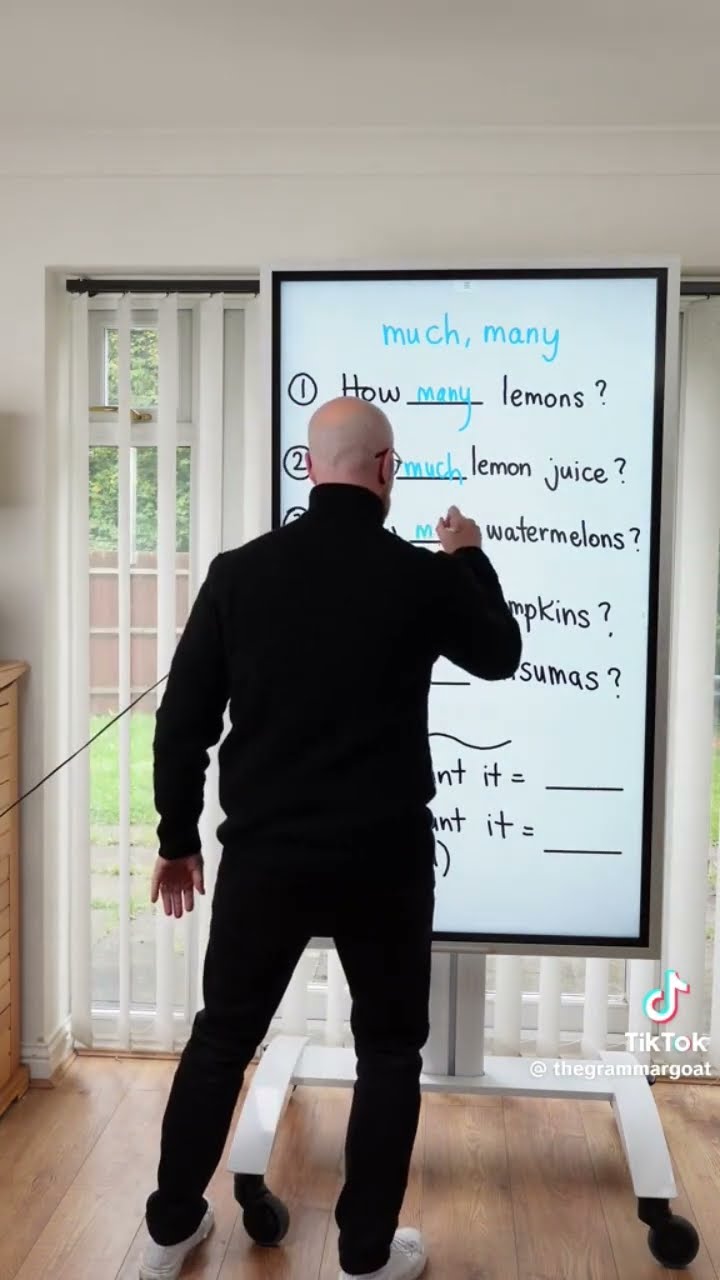 much, many
① How many lemons ?
② much lemon juice ?
watermelons ?
?
?
it = ____
it = ____
TikTok
@ thegrammargoat